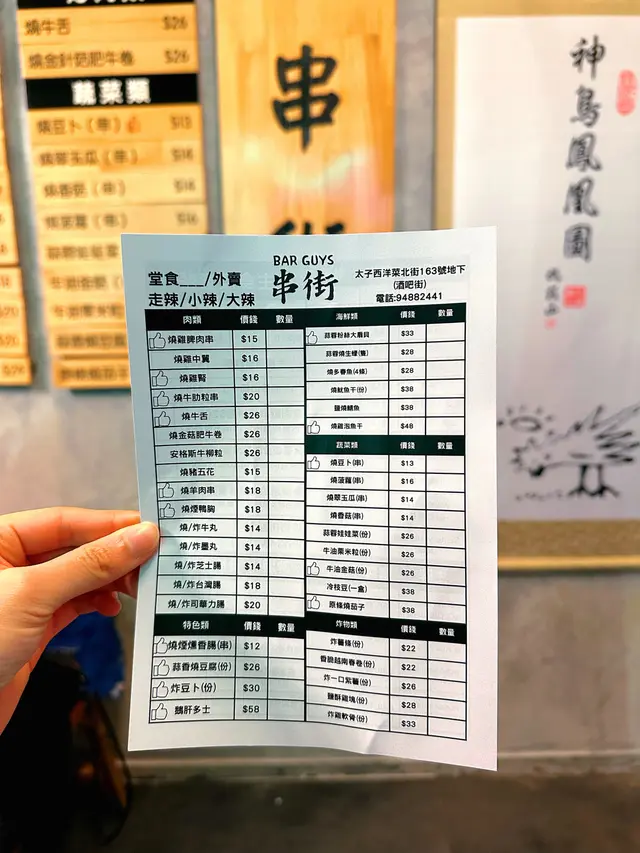 燒牛舌 $26
燒金針菇肥牛卷 $26
蔬菜類
燒豆卜（串） $13
燒翠玉瓜（串）
燒香菇（串）
串
神鳥鳳凰圖
BAR GUYS
串街
堂食___/外賣
走辣/小辣/大辣
太子西洋菜北街163號地下
(酒吧街)
電話:94882441
肉類 價錢 數量
燒雞脾肉串 $15
燒雞中翼 $16
燒雞腎 $16
燒牛肋粒串 $20
燒牛舌 $26
燒金菇肥牛卷 $26
安格斯牛柳粒 $26
燒豬五花 $15
燒羊肉串 $18
燒煙鴨胸 $18
燒/炸牛丸 $14
燒/炸墨丸 $14
燒/炸芝士腸 $14
燒/炸台灣腸 $18
燒/炸司華力腸 $20
特色類 價錢 數量
燒煙燻香腸(串) $12
蒜香燒豆腐(份) $26
炸豆卜(份) $30
鵝肝多士 $58
海鮮類 價錢 數量
蒜蓉粉絲大扇貝 $33
蒜蓉燒生蠔(隻) $28
燒多春魚(4條) $28
燒魷魚干(份) $38
鹽燒鯖魚 $38
燒雞泡魚干 $48
蔬菜類 價錢 數量
燒豆卜(串) $13
燒菠蘿(串) $16
燒翠玉瓜(串) $14
燒香菇(串) $14
蒜蓉娃娃菜(份) $26
牛油粟米粒(份) $26
牛油金菇(份) $26
冷枝豆(一盒) $38
原條燒茄子 $38
炸物類 價錢 數量
炸薯條(份) $22
香脆越南春卷(份) $22
炸一口紫薯(份) $26
鹽酥雞塊(份) $28
炸雞軟骨(份) $33